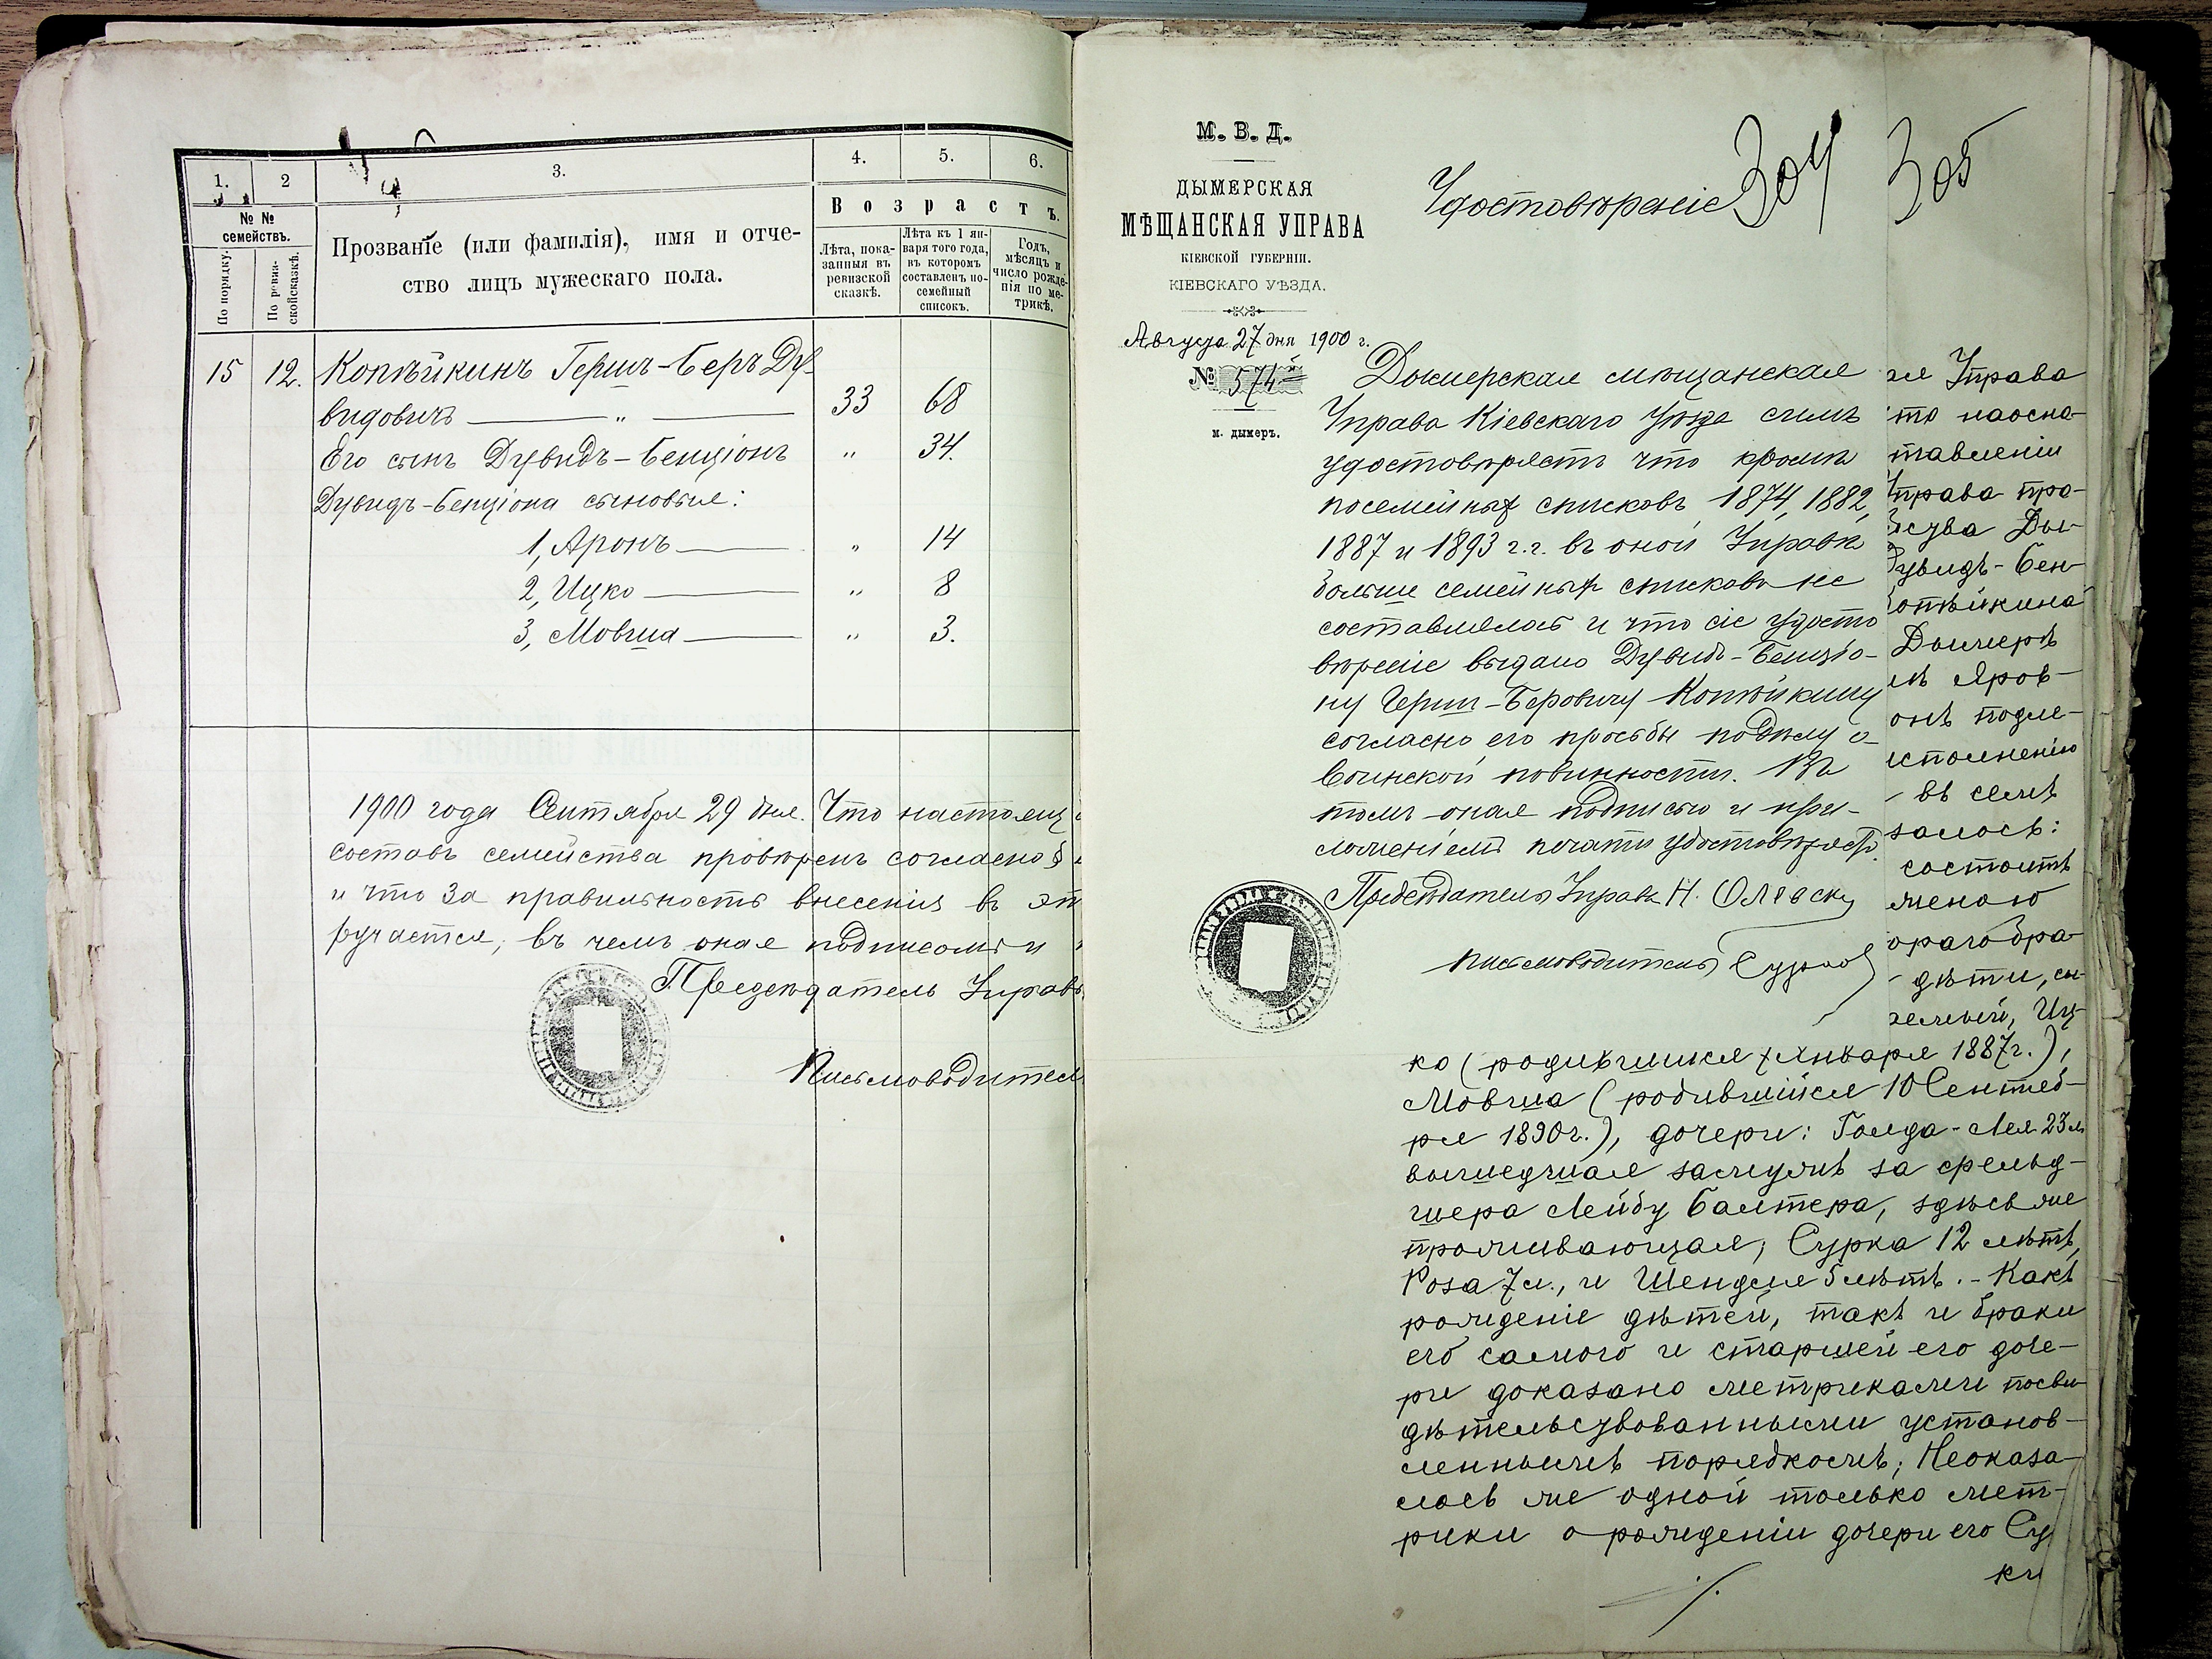 1.
2
3.
4.
5.
6.
№ №
семействъ.
По порядку.
По ревиз-
скойсказкѣ.
Прозваніе (или фамилія), имя и отче-
ство лицъ мужескаго пола.
Возрастъ.
Лѣта, пока-
занныя въ
ревизской
сказкѣ.
Лѣта къ 1 ян-
варя того года,
въ которомъ
составленъ по-
семейный
списокъ.
Годъ,
мѣсяцъ и
число рожде-
нія по ме-
трикѣ.
15 12. Копѣйкинъ Гершъ-Беръ Ду-
видовичъ — „ — 33 68
Его сынъ Дувидъ-Бенціонъ „ 34.
Дувидъ-Бенціона сыновья:
1, Аронъ — „ 14
2, Ицко — „ 8
3, Мовша — „ 3.
1900 года Сентября 29 дня. Что настоящ
составъ семейства провѣренъ согласно §
и что за правильность внесенія въ эт
ручается, въ чемъ оная подписомъ и
Предсѣдатель Управы
Письмоводитель
М. В. Д.
ДЫМЕРСКАЯ
МѢЩАНСКАЯ УПРАВА
КІЕВСКОЙ ГУБЕРНІИ.
КІЕВСКАГО УѢЗДА.
Августа 27 дня 1900 г.
№ 574
м. дымеръ.
Удостовѣреніе
304
Дымерская мѣщанская
Управа Кіевскаго уѣзда симъ
удостовѣряетъ что кромѣ
посемейныхъ списковъ 1874, 1882,
1887 и 1893 г.г. въ оной Управѣ
больше семейныхъ списковъ не
составлялось и что сіе удосто
вѣреніе выдано Дувидъ-Бенціо-
ну Герш-Беровичу Копѣйкину
согласно его просьбы по дѣлу о
воинской повинности. Въ
томъ оная подписью и при-
ложеніемъ печати удостовѣряетъ.
Предсѣдатель Управы Н. Олевск
письмоводитель
305
ая Управа
что наосно-
тавленіи
Управа про-
ства Ды-
Дувидъ-Бен
Копѣйкина
Дымерѣ
мъ Яров-
онъ подле-
исполненію
въ семъ
залось:
состоитъ
женою
тораго бра-
дѣти, сы-
Иц-
ко (родившійся января 1887г.),
Мовша (родившійся 10 Сентяб-
ря 1890г.), дочери: Голда-Лея 23 л.
вышедшая замужъ за фельд-
шера Лейбу Балтера, здѣсь же
проживающая, Сурка 12 лѣтъ,
Роза 7 л., и Шендля 5 лѣтъ. - Какъ
рожденіе дѣтей, такъ и браки
его самого и старшей его доче-
ри доказано метриками посви-
дѣтельствованными установ-
леннымъ порядкомъ; Неоказа-
лось же одной только мет-
рики о рожденіи дочери его Су
ки